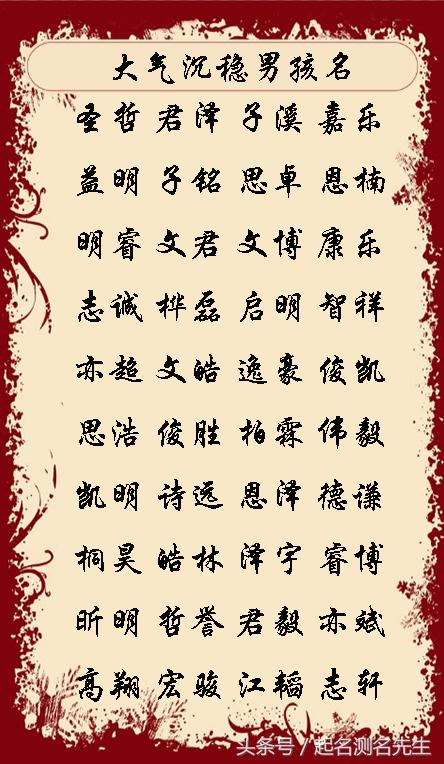 大气沉稳男孩名
圣哲 君泽 子溪 嘉乐
益明 子铭 思卓 恩楠
明睿 文君 文博 康乐
志诚 桦磊 启明 智祥
亦超 文皓 逸豪 俊凯
思浩 俊胜 柏霖 伟毅
凯明 诗远 恩泽 德谦
桐昊 皓林 泽宇 睿博
昕明 哲誉 君毅 亦斌
高翔 宏骏 江韬 志轩
头条号 / 起名测名先生